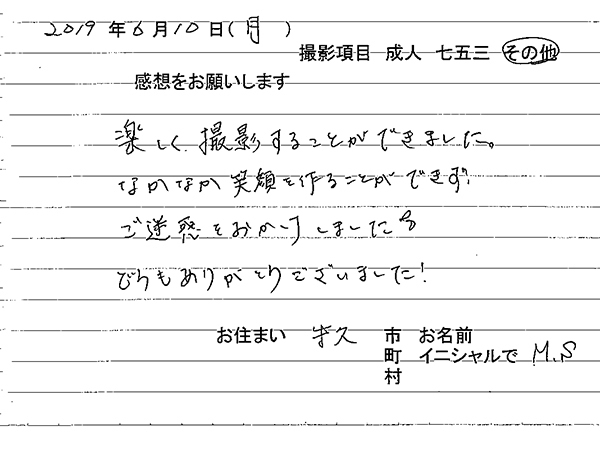 2019年6月10日(月)
撮影項目 成人 七五三 その他
感想をお願いします
楽しく撮影することができました。
なかなか笑顔を作ることができず、
ご迷惑をおかけしました
どうもありがとうございました!
お住まい 牛久 市 お名前
町 イニシャルで M.S
村